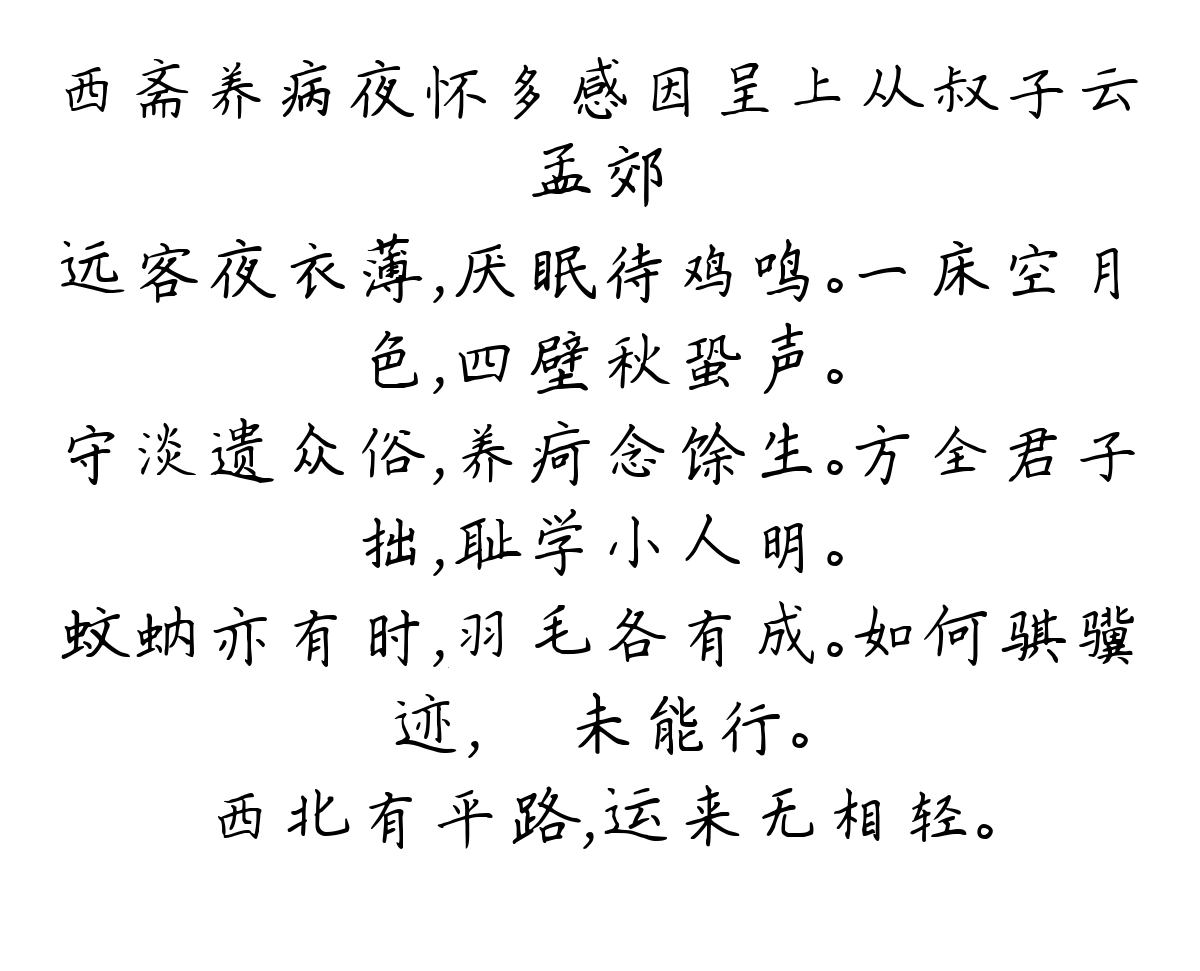 西斋养病夜怀多感因呈上从叔子云
孟郊
远客夜衣薄,厌眠待鸡鸣。一床空月
色,四壁秋蛩声。
守淡遗众俗,养疴念馀生。方全君子
拙,耻学小人明。
蚊蚋亦有时,羽毛各有成。如何骐骥
迹, 未能行。
西北有平路,运来无相轻。